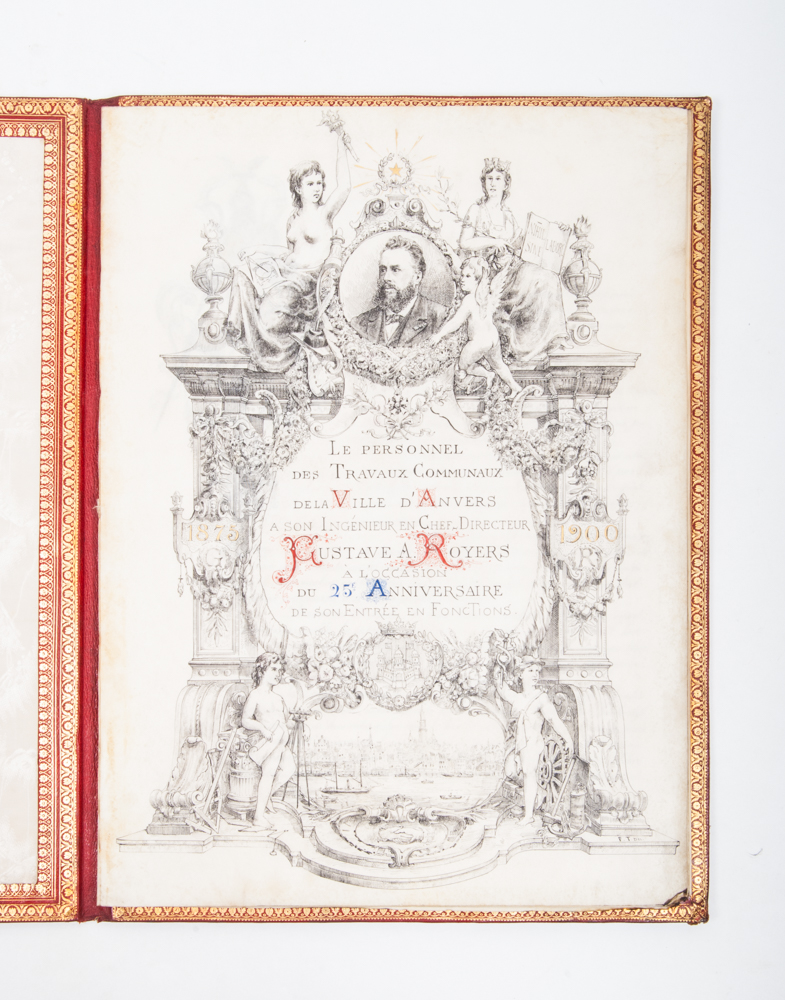 Le personnel
des Travaux Communaux
de la Ville d'Anvers
a son Ingénieur en Chef-Directeur
1875
1900
Gustave A. Royers
à l'occasion
du 25e Anniversaire
de son Entrée en Fonctions.